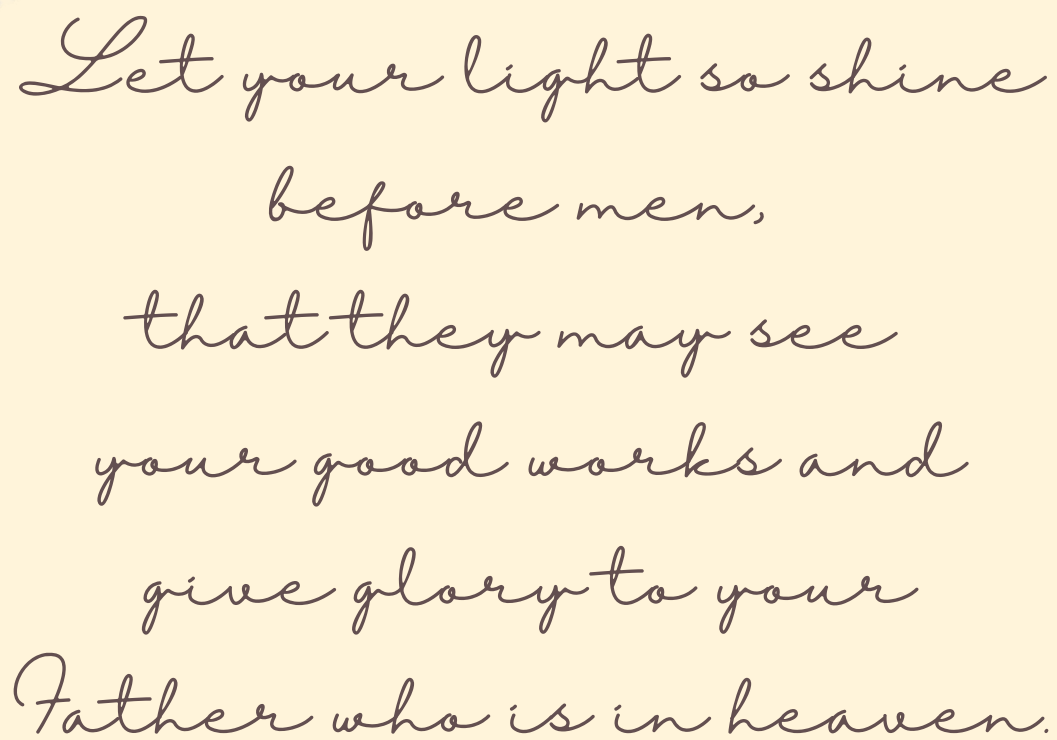 Let your light so shine
before men,
that they may see
your good works and
give glory to your
Father who is in heaven.